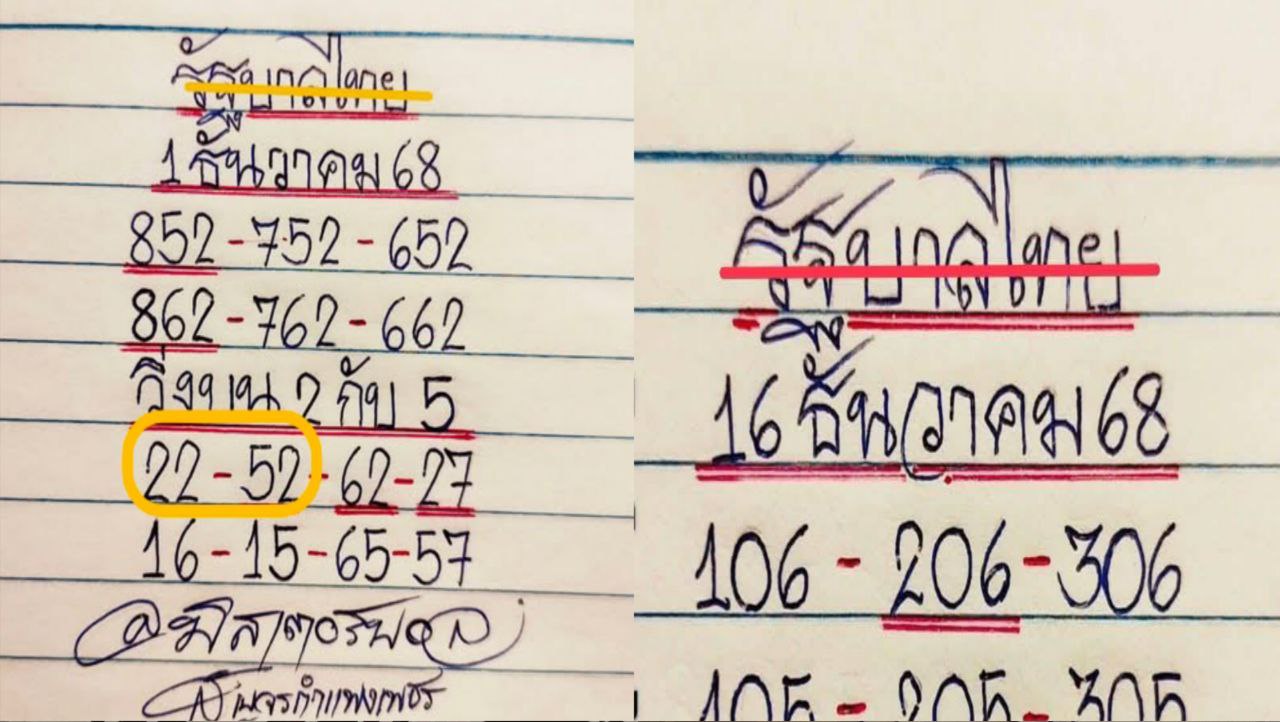 รัฐบาลไทย
1 ธันวาคม 68
852 - 752 - 652
862 - 762 - 662
วิ่งบน 2 กับ 5
22 - 52 - 62 - 27
16 - 15 - 65 - 57
@มิสเตอร์พอล
เนจรกำแพงเพชร
รัฐบาลไทย
16 ธันวาคม 68
106 - 206 - 306
105 - 205 - 305